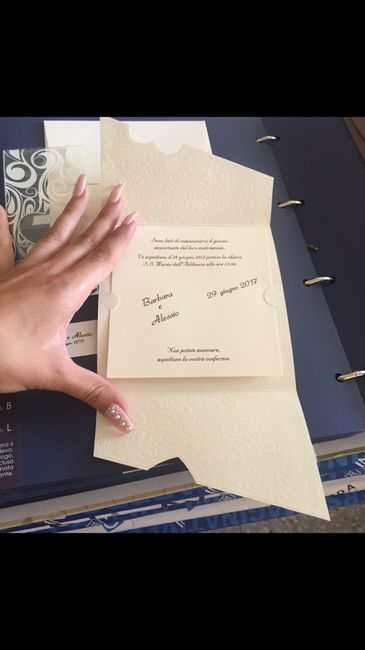 Sono lieti di comunicarvi il giorno
importante del loro matrimonio.
Vi aspettano il 29 giugno 2017 presso la chiesa
S.S. Maria dell'Addaura alle ore 12:00.
Barbara
e
Alessio
29 giugno 2017
Non potete mancare,
aspettiamo la vostra conferma.
e Alessio
2017
B
L